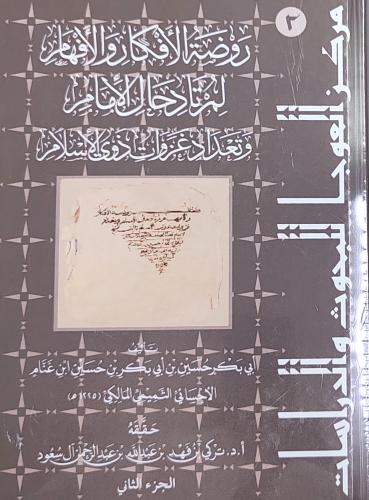 ٢
مركز العوجا للبحوث والدراسات
روضة الأفكار والأفهام
لمرتاد حال الإمام
وتعداد غزوات ذوي الإسلام
تأليف
أبي بكر حسين بن أبي بكر بن حسين ابن غنام
الأحسائي التميمي المالكي (١٢٢٥هـ)
حققه
أ.د. تركي بن فهد بن عبدالله بن عبدالرحمن آل سعود
الجزء الثاني